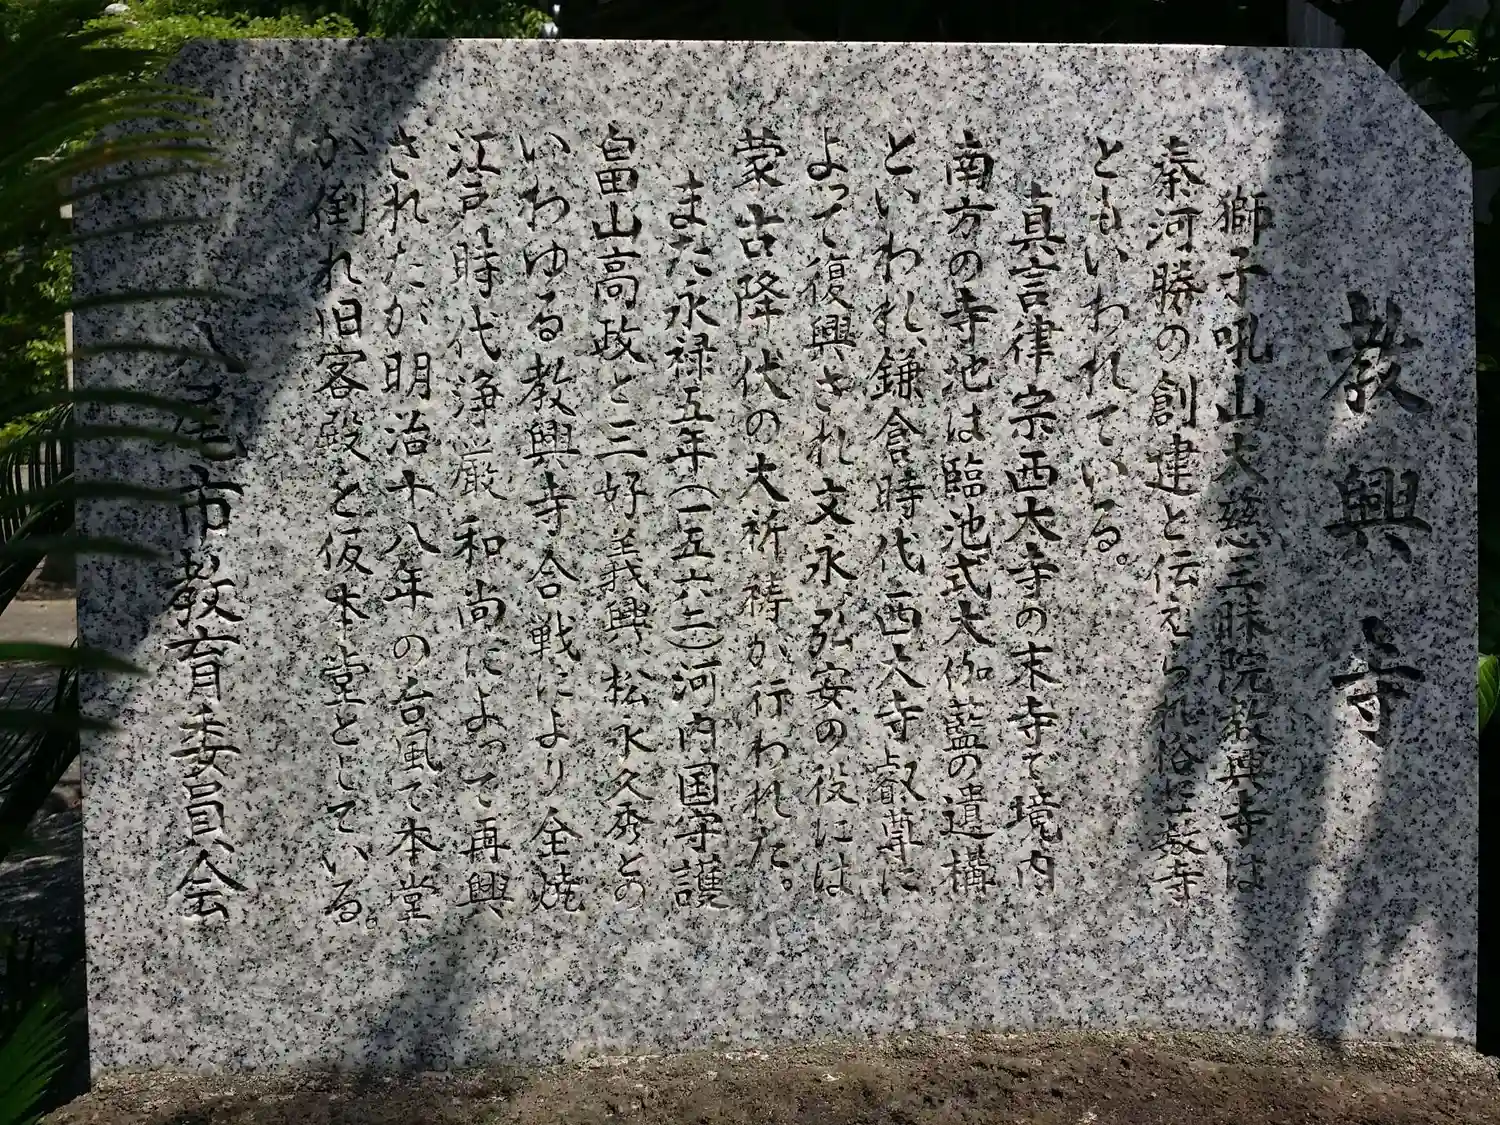 教興寺
獅子吼山大慈三昧院教興寺は
秦河勝の創建と伝えられ俗に秦寺
ともいわれている。
真言律宗西大寺の末寺で境内
南方の寺池は臨池式大伽藍の遺構
といわれ、鎌倉時代西大寺叡尊に
よって復興され文永、弘安の役には
蒙古降伏の大祈祷が行われた。
また永禄五年(一五六二)河内国守護
畠山高政と三好義興、松永久秀との
いわゆる教興寺合戦により全焼
江戸時代浄厳和尚によって再興
されたが明治十八年の台風で本堂
が倒れ旧客殿と仮本堂としている。
八尾市教育委員会